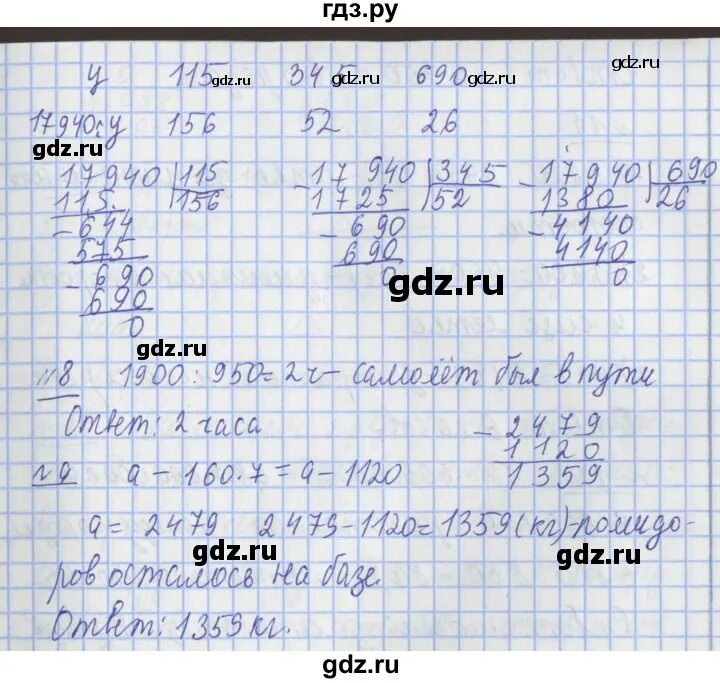 гдз.ру
у 115 345 690
17940:у 156 52 26
17940 115 - 17 940 345 - 17940 690
115 156 1725 52 1380 26
- 644 - 690 - 4140
575 690 4140
- 690 0 0
690
0
№8 1900 : 950 = 2 ч - самолёт был в пути
Ответ: 2 часа
- 2479
1120
1359
№9 а - 160·7 = а - 1120
а = 2479 2479 - 1120 = 1359 (кг) - помидо-
ров осталось на базе.
Ответ: 1359 кг.
gdz.ru
gdz.ru
gdz.ru
gdz.ru
gdz.ru
gdz.ru
gdz.ru
gdz.ru
gdz.ru
gdz.ru
gdz.ru
gdz.ru